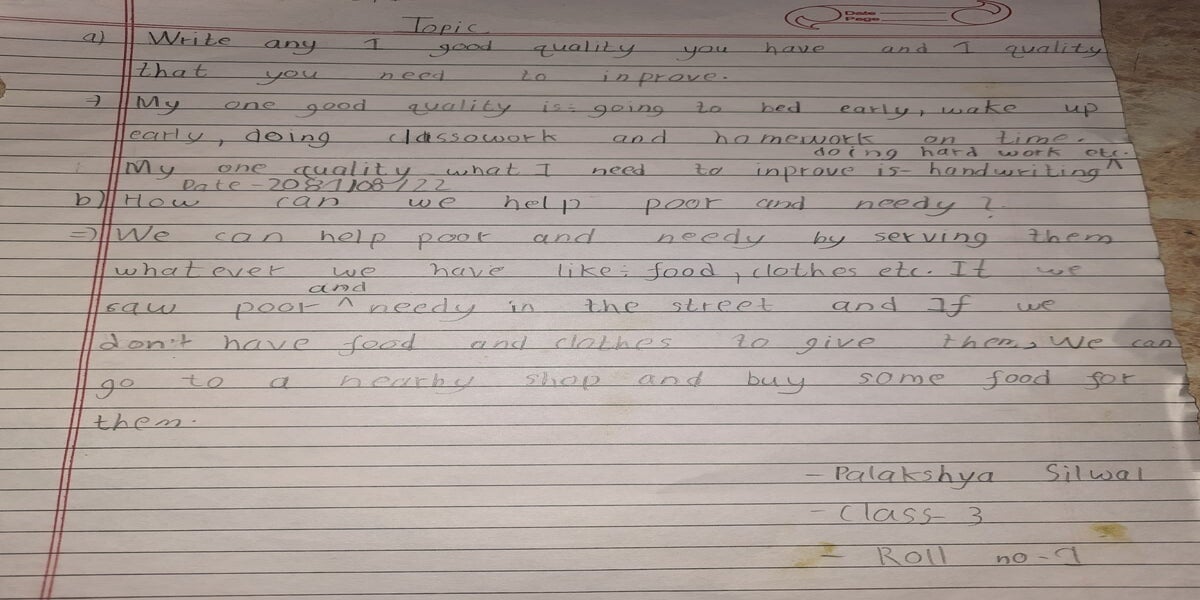 Date
Page
Topic
a) Write any 1 good quality you have and 1 quality
that you need to inprove.
→ My one good quality is:- going to bed early, wake up
early, doing classowork and homework on time.
doing hard work etc.
My one quality what I need to inprove is- handwriting ^
Date - 2081/08/22
b) How can we help poor and needy?
=) We can help poor and needy by serving them
whatever we have like:- food, clothes etc. If we
and
saw poor ^ needy in the street and If we
don't have food and clothes to give them, We can
go to a nearby shop and buy some food for
them.
- Palakshya Silwal
- Class- 3
- Roll no - 9